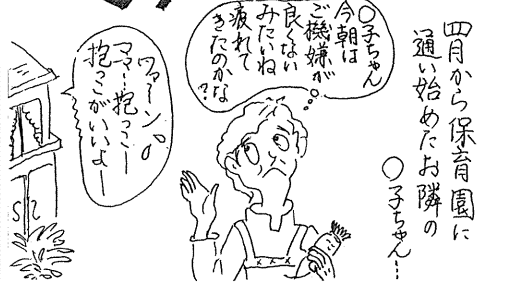 四月から保育園に
通い始めたお隣の
〇子ちゃん…
〇子ちゃん
今朝は
ご機嫌が
良くない
みたいね
疲れて
きたのかな?
ワァーン
ママー抱っこー
抱っこがいいよー